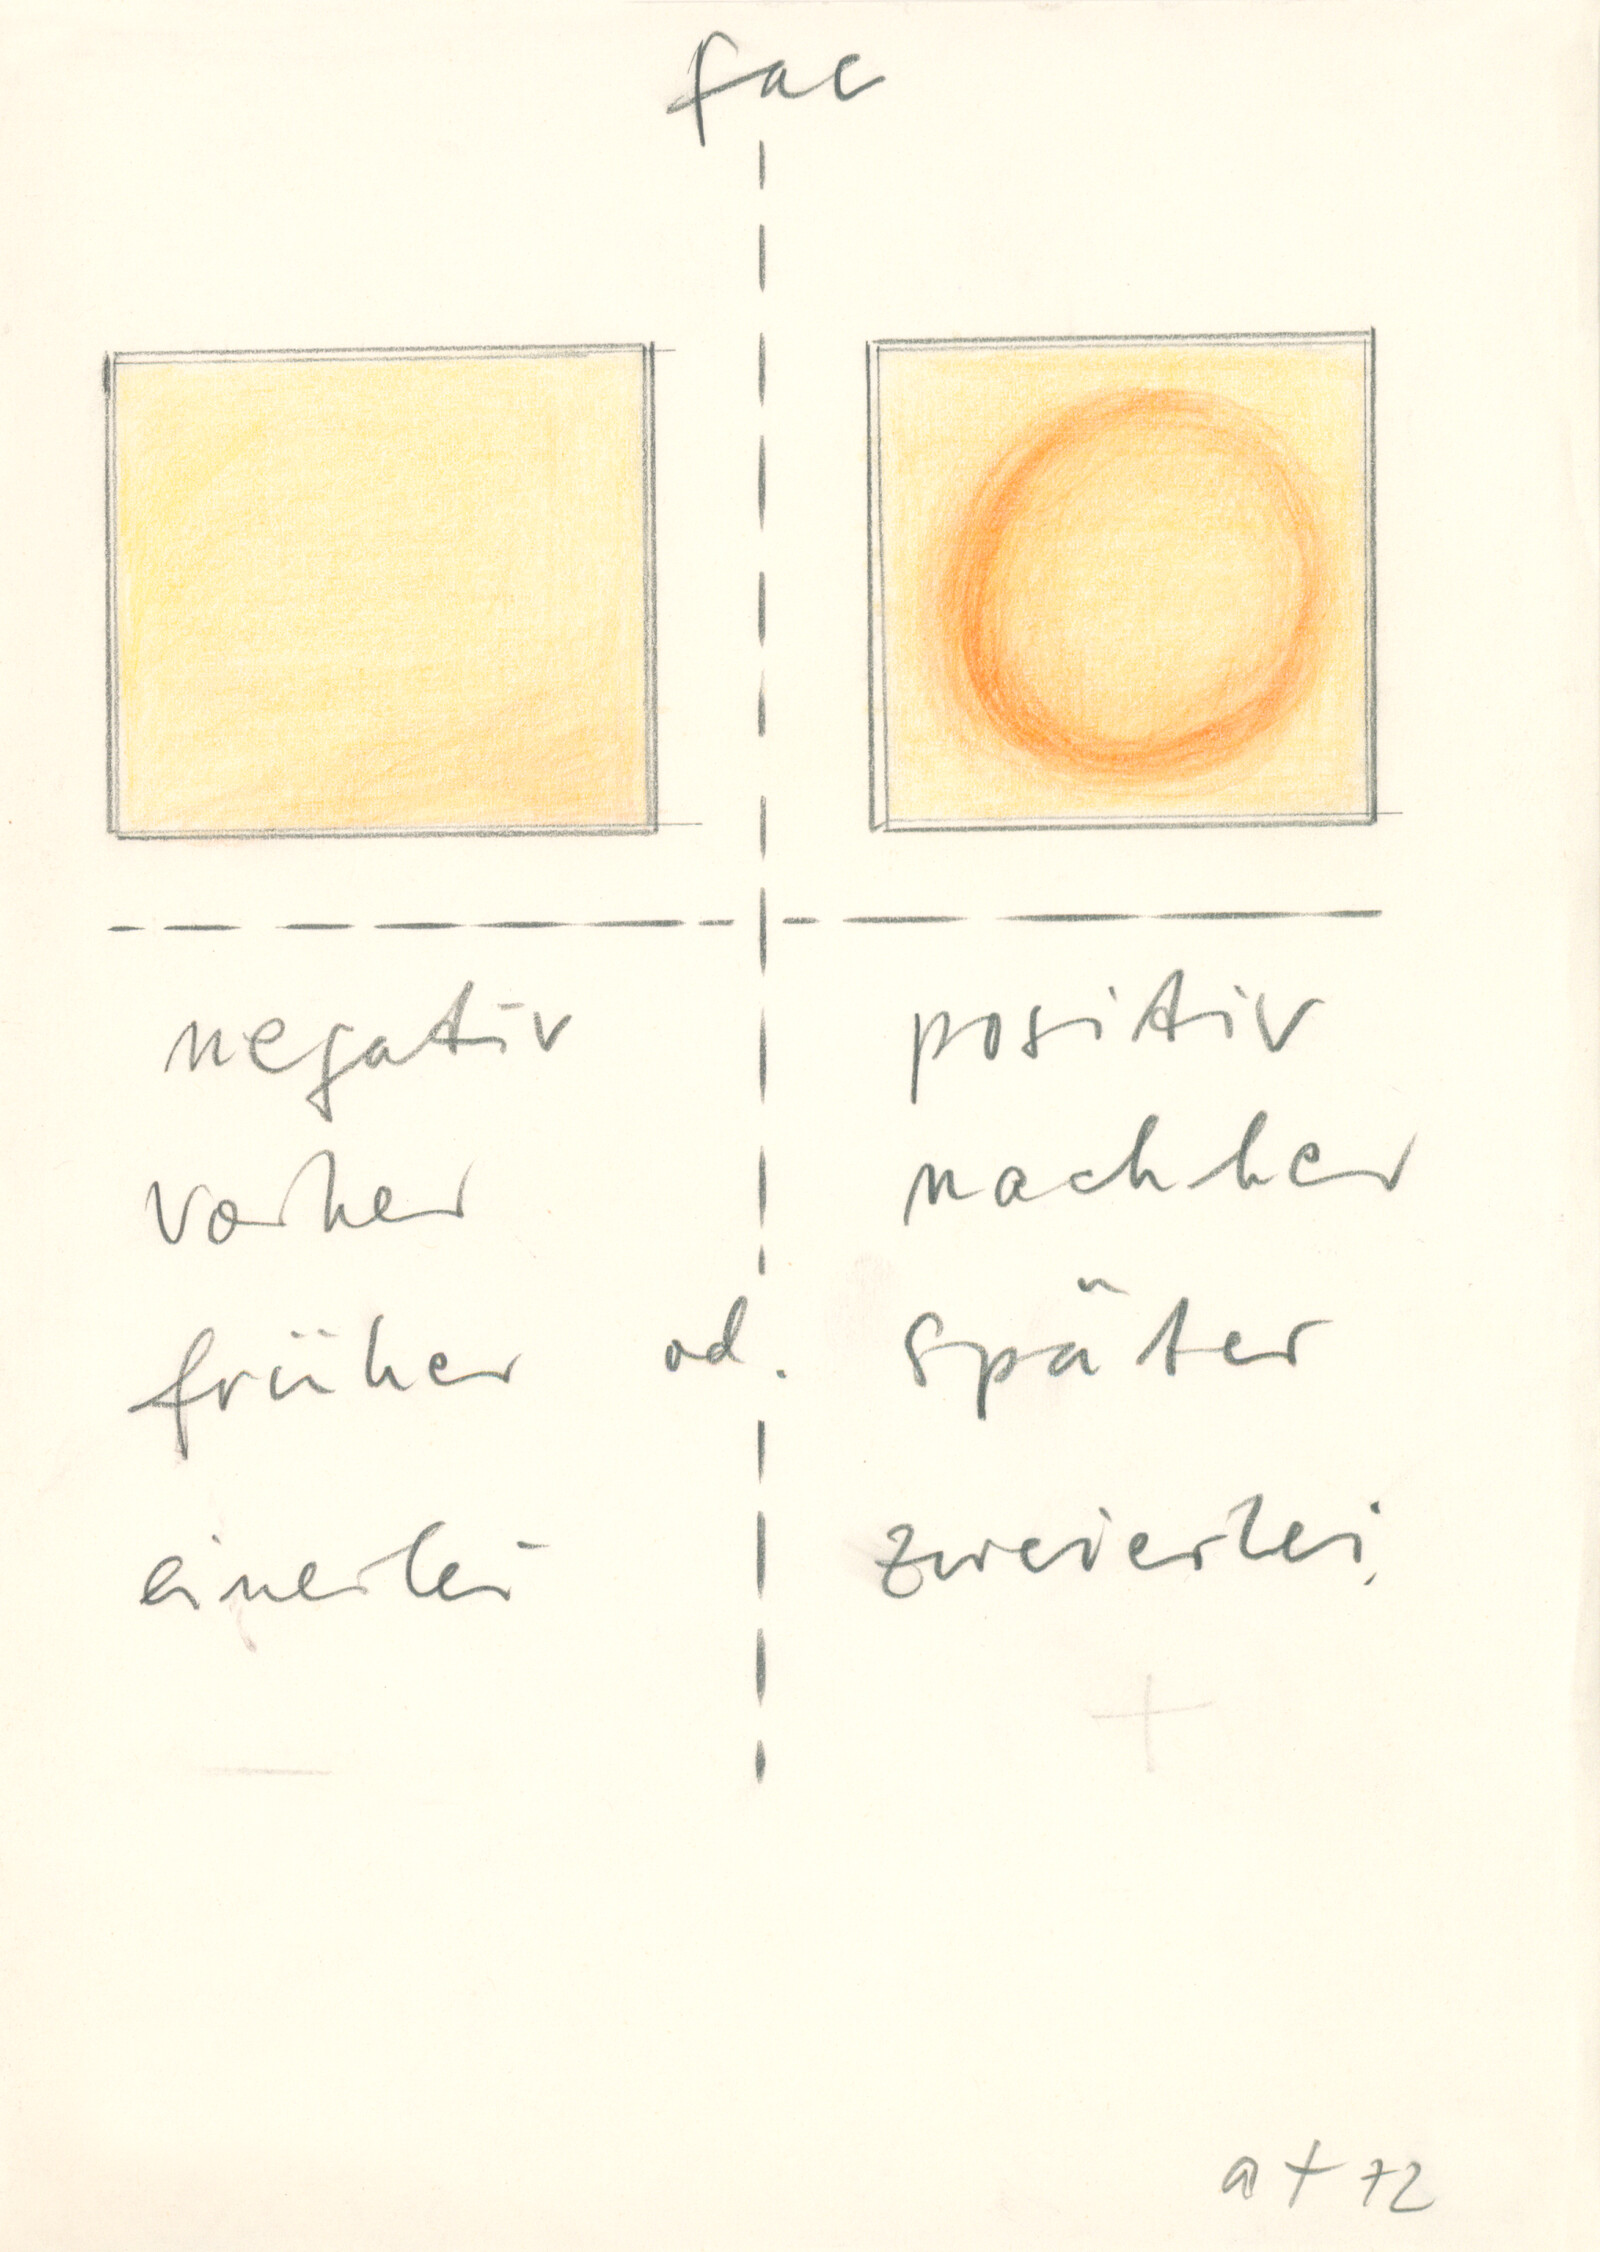 fac
negativ positiv
vorher nachher
früher od. später
einerlei zweierlei
- +
a t 72